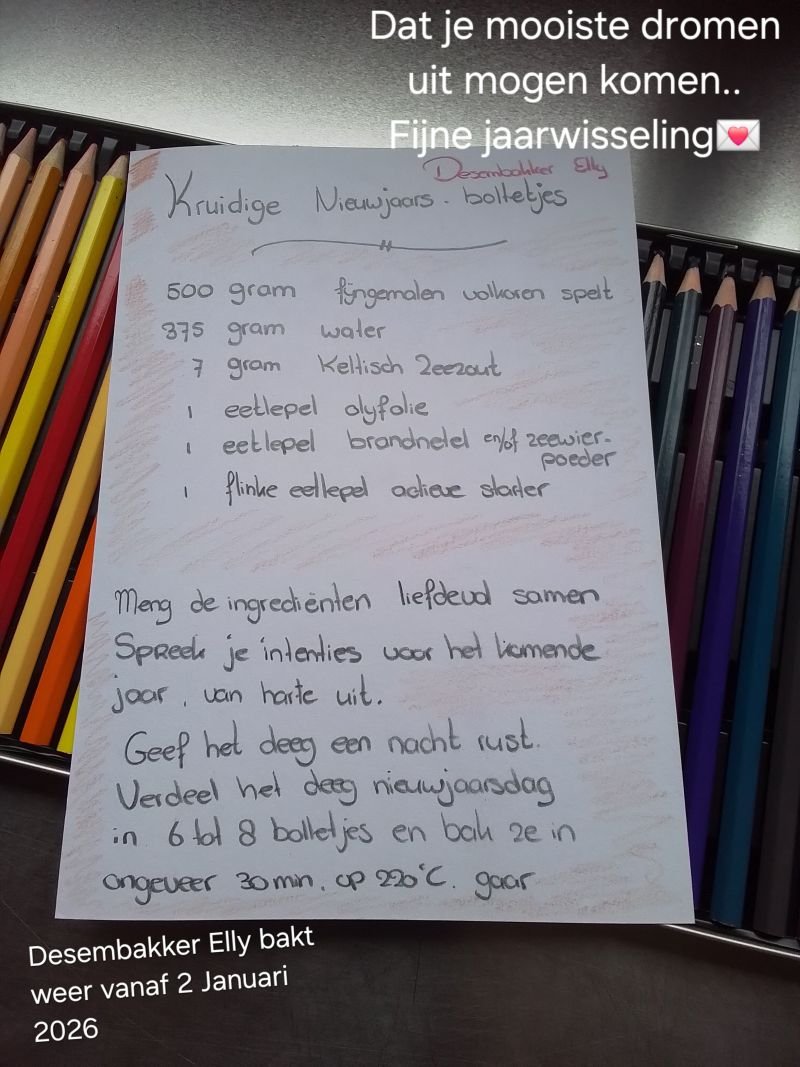 Dat je mooiste dromen
uit mogen komen..
Fijne jaarwisseling💌
Desembakker Elly
Kruidige Nieuwjaars-bolletjes
500 gram fijngemalen volkoren spelt
375 gram water
7 gram Keltisch Zeezout
1 eetlepel olyfolie
1 eetlepel brandnetel en/of zeewier-
poeder
1 flinke eetlepel actieve starter
Meng de ingrediënten liefdevol samen
Spreek je intenties voor het komende
jaar, van harte uit.
Geef het deeg een nacht rust.
Verdeel het deeg nieuwjaarsdag
in 6 tot 8 bolletjes en bak ze in
ongeveer 30 min. op 220°C. gaar
Desembakker Elly bakt
weer vanaf 2 Januari
2026